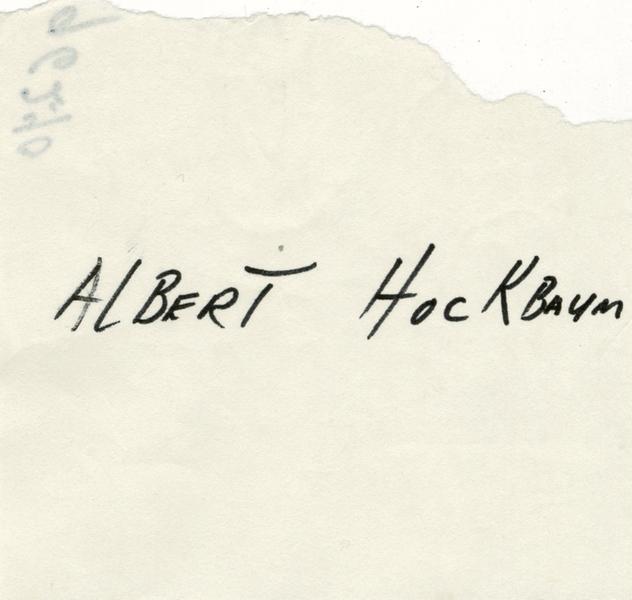 ALBERT HOCKBAUM